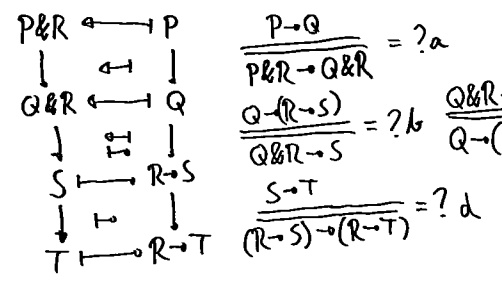 P&R ↤ P
Q&R ↤ Q
S ↦ R→S
T ↦ R→T
P→Q
P&R→Q&R = ?a
Q→(R→S)
Q&R→S = ?b
Q&R
Q→(
S→T
(R→S)→(R→T) = ?d